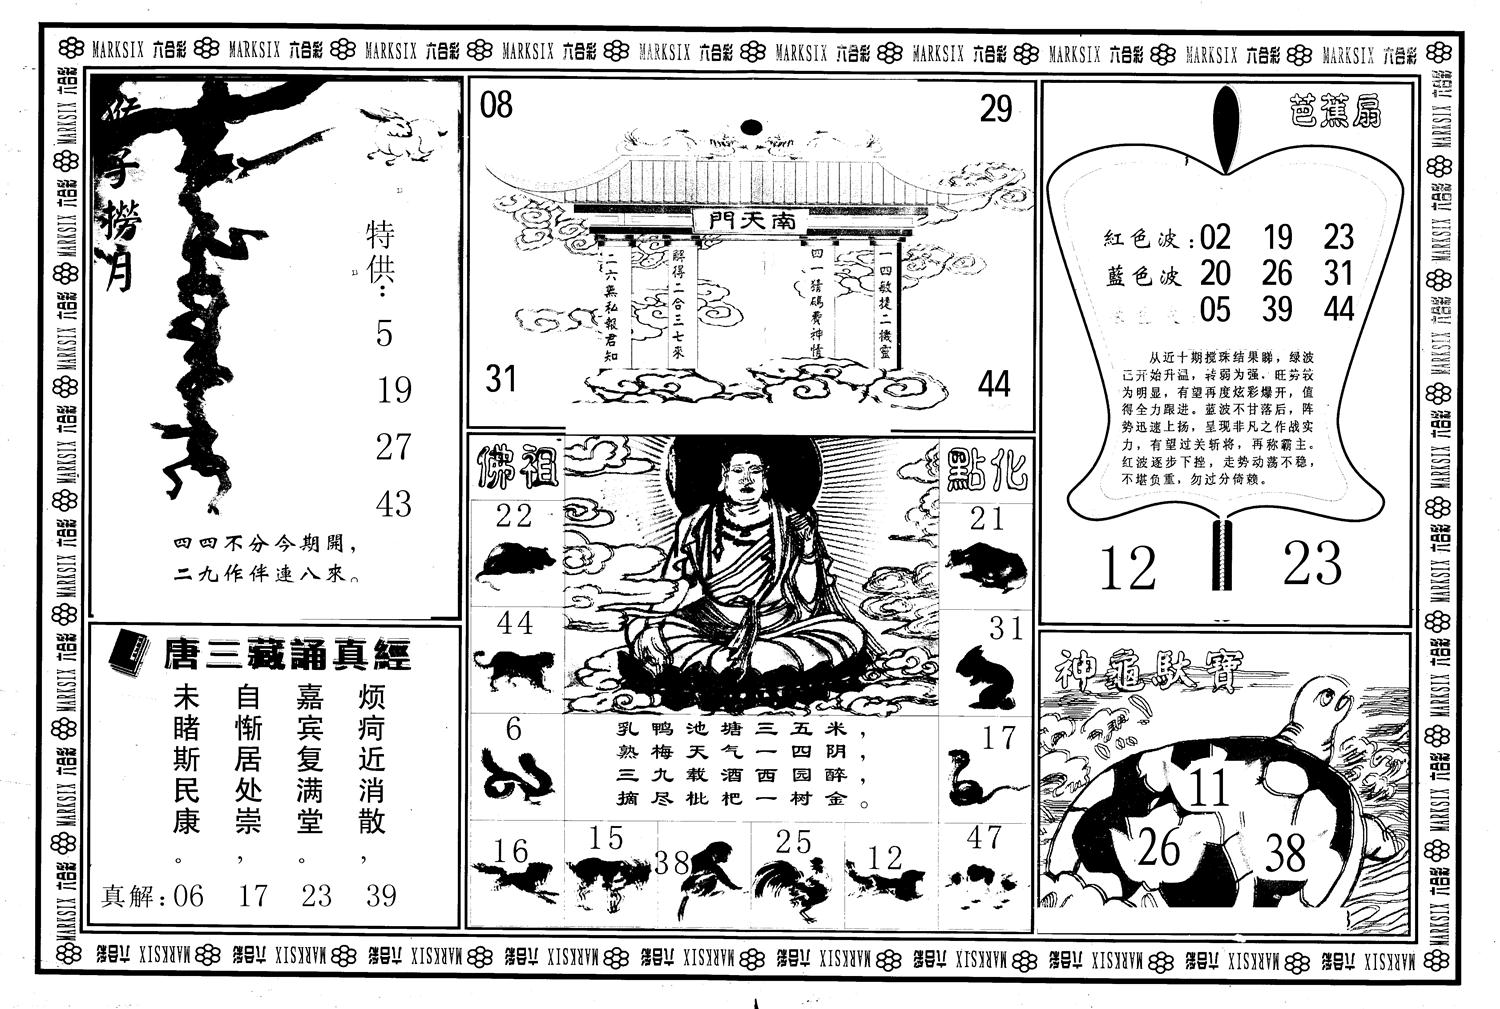 MARKSIX 六合彩 MARKSIX 六合彩 MARKSIX 六合彩 MARKSIX 六合彩 MARKSIX 六合彩 MARKSIX 六合彩 MARKSIX 六合彩 MARKSIX 六合彩 MARKSIX 六合彩 MARKSIX 六合彩
猴子撈月
特供：
5
19
27
43
四四不分今期開，
二九作伴連八來。
08
29
門天南
一四敏捷二機靈
四一猜碼費神情
解得二合三七來
二六無私報君知
31
44
芭蕉扇
紅色波：02 19 23
藍色波 20 26 31
05 39 44
从近十期搅珠结果睇，绿波
已开始升温，转弱为强．旺势较
为明显，有望再度炫彩爆开，值
得全力跟进。蓝波不甘落后，阵
势迅速上扬，呈现非凡之作战实
力，有望过关斩将，再称霸主。
红波逐步下挫，走势动荡不稳，
不堪负重，勿过分倚赖。
12
23
唐三藏誦真經
烦疴近消散，
嘉宾复满堂。
自惭居处崇，
未睹斯民康。
真解：06 17 23 39
佛祖
點化
22
21
44
31
6
17
乳鸭池塘三五米，
熟梅天气一四阴，
三九载酒西园醉，
摘尽枇杷一树金。
16
15
38
25
12
47
神龜馱寶
11
26
38